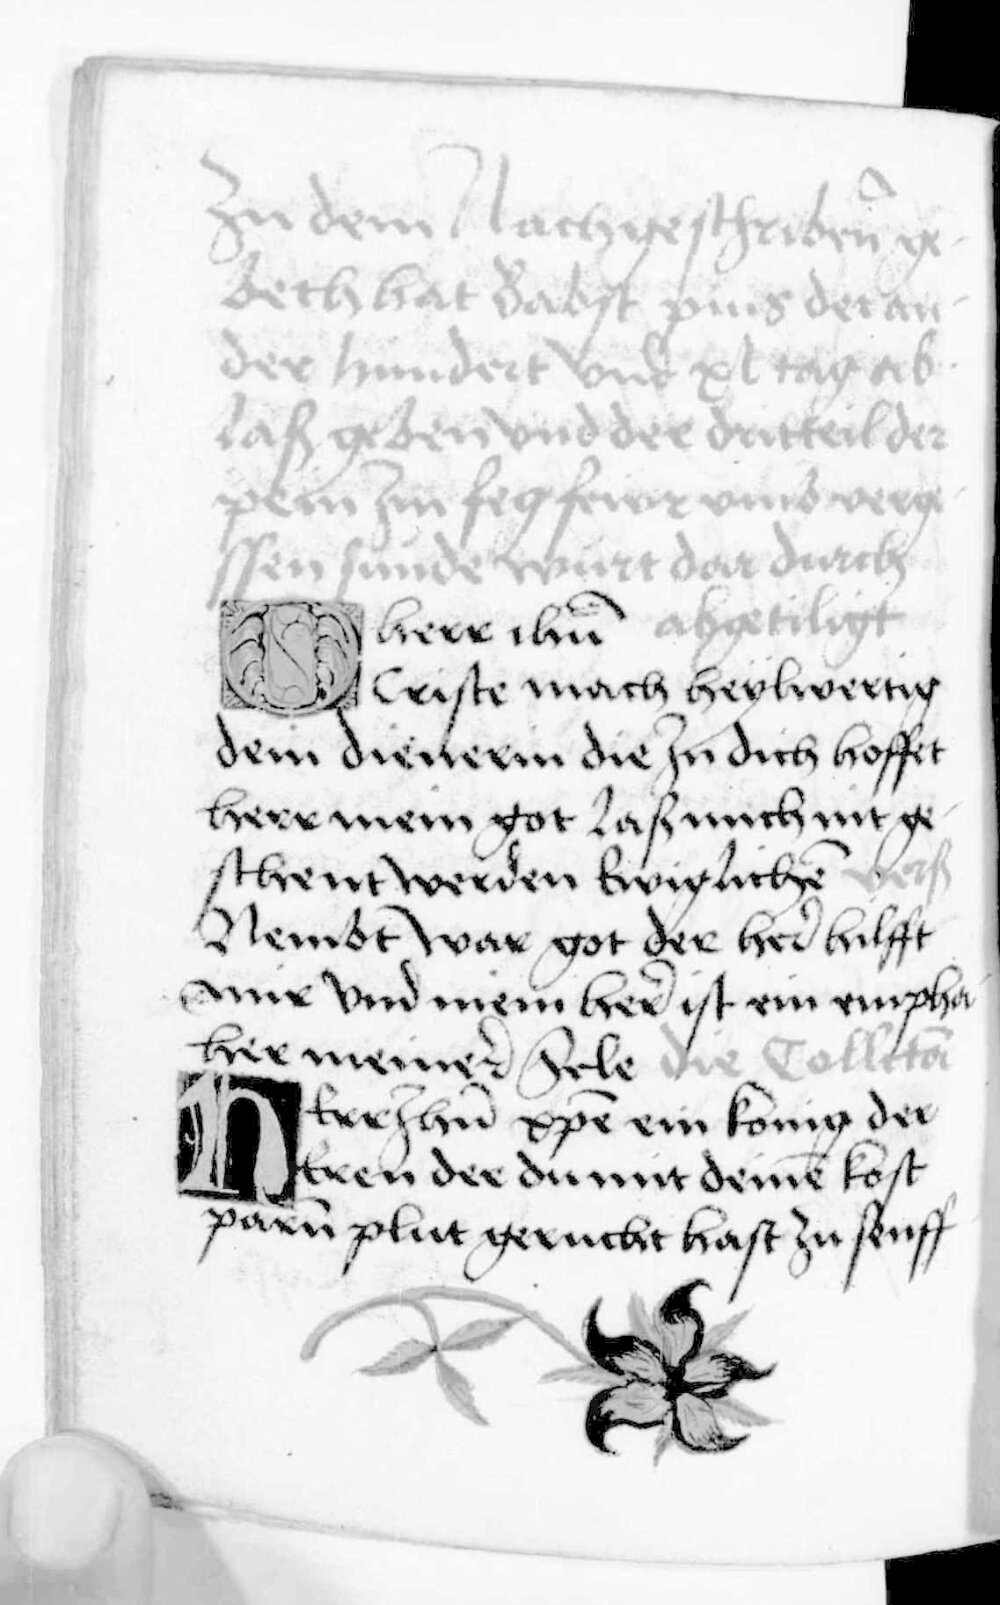 Zu dem Nachgeschribeñ ge-
beth hat Babst pius der an-
der hundert vnd xl tag ab-
laß geben vnd der dritteil der
pein Im fegfewr vnnd verge-
ssen sunde wurt dar durch
O herr ihū abgetiligt
Criste mach heylwertig
dein dienerin die zu dich hoffet
herr mein got laß mich nit ge-
schent werden Ewiglichē verß
Nembt war got der her hilfft
mir vnd mein her ist ein empha-
her meiner Sele die Collctā
Herr Jhū xpē ein konig der
Eren der du mit deinē kost
parñ plut gerucht hast zu senff